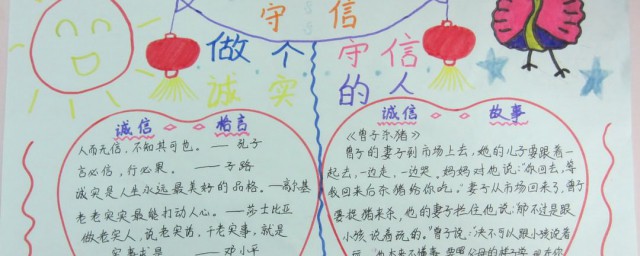 守 信
做个 守信
诚实 的人
诚信 格言
人而无信，不知其可也。——孔子
言必信，行必果。——子路
诚实是人生永远最美好的品格。——高尔基
老老实实最能打动人心。——莎士比亚
做老实人，说老实话，干老实事，就是
实事求是 ——邓小平
诚信 故事
《曾子杀猪》
曾子的妻子到市场上去，她的儿子要跟着一
起去，一边走，一边哭。妈妈对他说："你回去，等
我回来后杀猪给你吃。"妻子从市场回来了，曾子
要捉猪来杀，他的妻子拦住他说："那不过是跟
小孩说着玩的。"曾子说："决不可以跟小孩说着
玩。